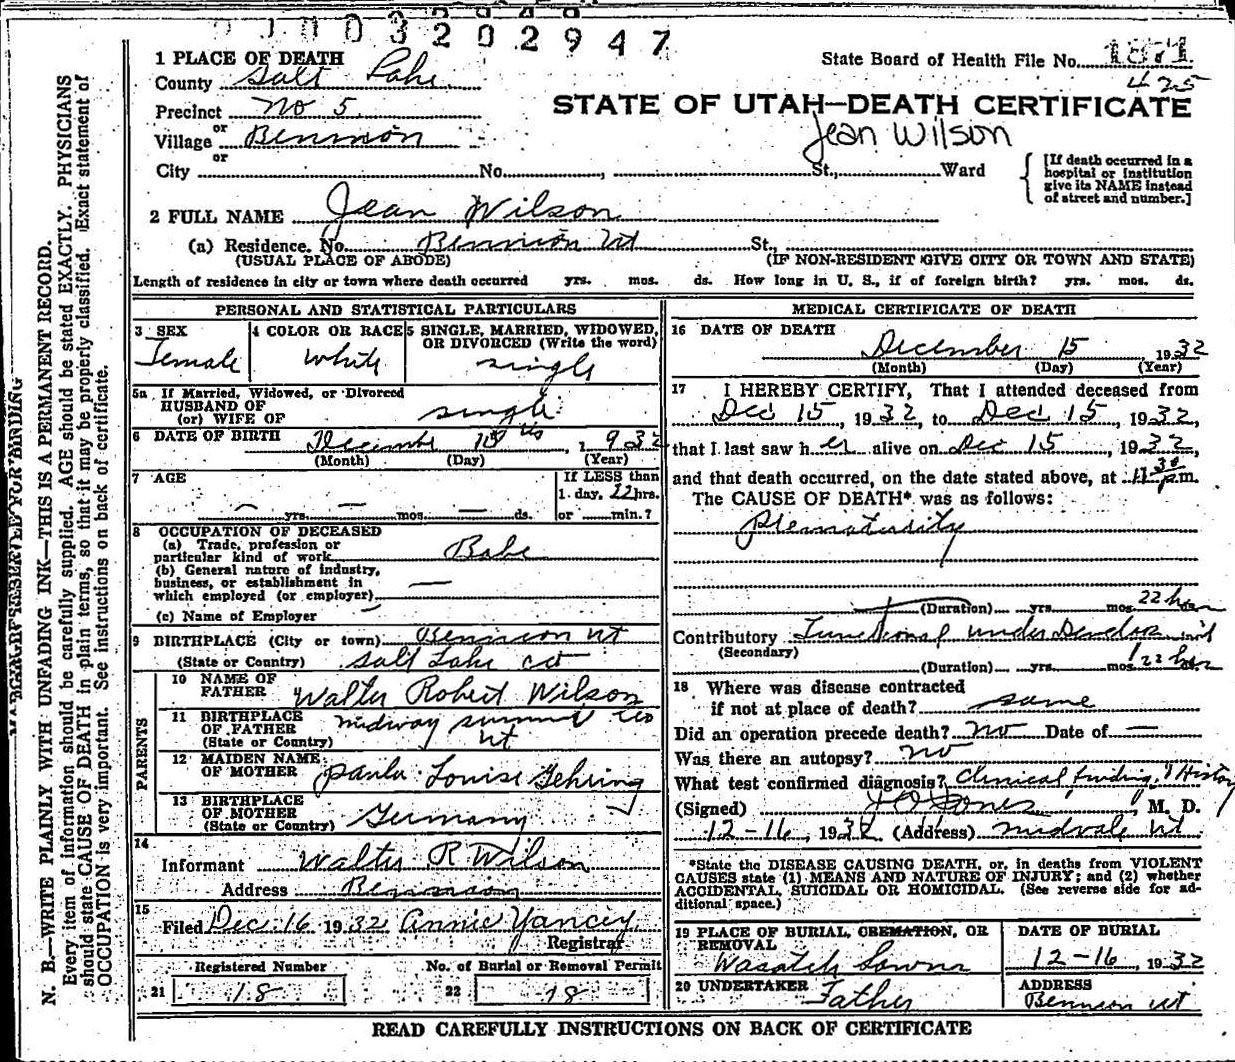 1003202947
1 PLACE OF DEATH
State Board of Health File No. 1871
425
County Salt Lake
Precinct No 5
STATE OF UTAH—DEATH CERTIFICATE
or
Village Bennion
Jean Wilson
or
City No. St., Ward
[If death occurred in a hospital or institution give its NAME instead of street and number.]
2 FULL NAME Jean Wilson
(a) Residence. No. Bennion Ut St.,
(USUAL PLACE OF ABODE) (IF NON-RESIDENT GIVE CITY OR TOWN AND STATE)
Length of residence in city or town where death occurred yrs. mos. ds. How long in U. S., if of foreign birth? yrs. mos. ds.
PERSONAL AND STATISTICAL PARTICULARS
3 SEX
Female
4 COLOR OR RACE
White
5 SINGLE, MARRIED, WIDOWED,
OR DIVORCED (Write the word)
single
5a If Married, Widowed, or Divorced
HUSBAND OF
(or) WIFE OF single
6 DATE OF BIRTH December 15th, 1932
(Month) (Day) (Year)
7 AGE
— yrs. — mos. — ds.
If LESS than
1 day, 22 hrs.
or min.?
8 OCCUPATION OF DECEASED
(a) Trade, profession or
particular kind of work Babe
(b) General nature of industry,
business, or establishment in
which employed (or employer) —
(c) Name of Employer —
9 BIRTHPLACE (City or town) Bennion Ut
(State or Country) Salt Lake co
PARENTS
10 NAME OF
FATHER Walter Robert Wilson
11 BIRTHPLACE
OF FATHER Midway Summit Co
(State or Country) Ut
12 MAIDEN NAME
OF MOTHER Paula Louise Gehring
13 BIRTHPLACE
OF MOTHER
(State or Country) Germany
14
Informant Walter R Wilson
Address Bennion
15
Filed Dec. 16 1932 Annie Yancey
Registrar
Registered Number No. of Burial or Removal Permit
21 18 22 18
MEDICAL CERTIFICATE OF DEATH
16 DATE OF DEATH
December 15, 1932
(Month) (Day) (Year)
17 I HEREBY CERTIFY, That I attended deceased from
Dec 15, 1932, to Dec 15, 1932,
that I last saw her alive on Dec 15, 1932,
and that death occurred, on the date stated above, at 11 30 p.m.
The CAUSE OF DEATH* was as follows:
Prematurity
(Duration) yrs. mos. 22 hrs
Contributory Functional under
(Secondary)
(Duration) yrs. mos. 22 hrs
18 Where was disease contracted
if not at place of death? same
Did an operation precede death? No Date of —
Was there an autopsy? no
What test confirmed diagnosis? Clinical finding & History
(Signed) Jones, M. D.
12-16, 1932 (Address) Midvale Ut
*State the DISEASE CAUSING DEATH, or, in deaths from VIOLENT
CAUSES state (1) MEANS AND NATURE OF INJURY; and (2) whether
ACCIDENTAL, SUICIDAL OR HOMICIDAL. (See reverse side for additional space.)
19 PLACE OF BURIAL, CREMATION, OR
REMOVAL
Wasatch Lawns
DATE OF BURIAL
12-16, 1932
20 UNDERTAKER Father
ADDRESS
Bennion Ut
READ CAREFULLY INSTRUCTIONS ON BACK OF CERTIFICATE
MARGIN RESERVED FOR BINDING
N. B.—WRITE PLAINLY WITH UNFADING INK—THIS IS A PERMANENT RECORD.
Every item of information should be carefully supplied. AGE should be stated EXACTLY. PHYSICIANS
should state CAUSE OF DEATH in plain terms, so that it may be properly classified. Exact statement of
OCCUPATION is very important. See instructions on back of certificate.